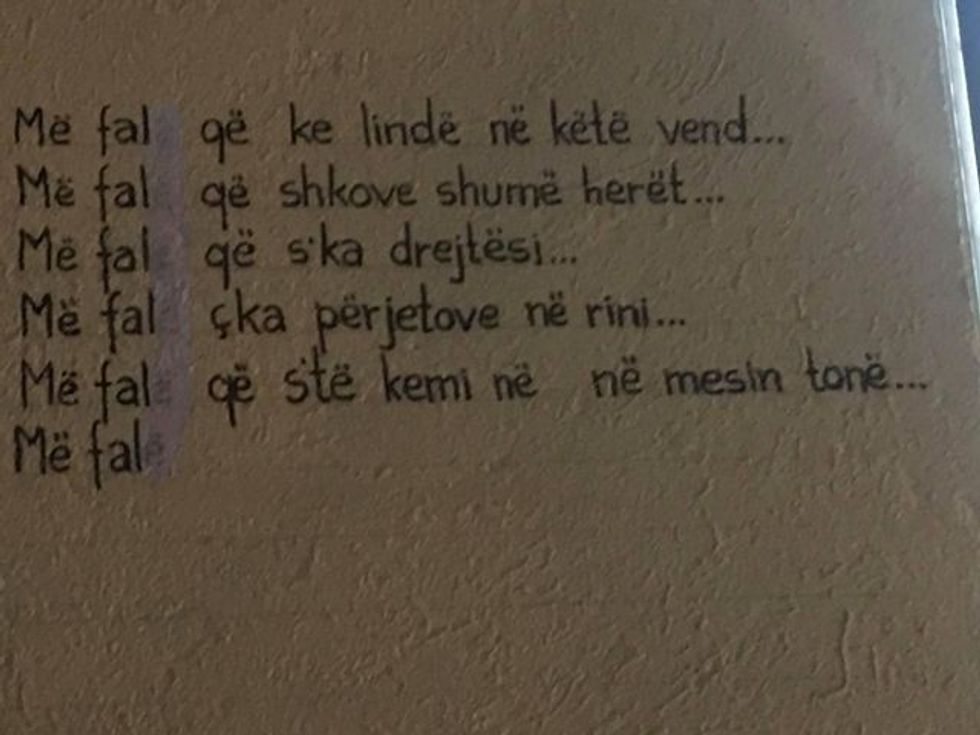 Më fal që ke lindë në këtë vend...
Më fal që shkove shumë herët...
Më fal që s'ka drejtësi...
Më fal çka përjetove në rini...
Më fal që s'të kemi në në mesin tonë...
Më fal